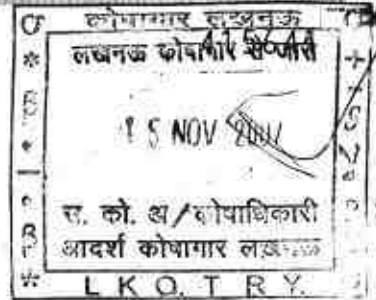 कोषागार लखनऊ
लखनऊ कोषागार से जारी
15 NOV 2007
स. को. अ/कोषाधिकारी
आदर्श कोषागार लखनऊ
L K O. T R Y.